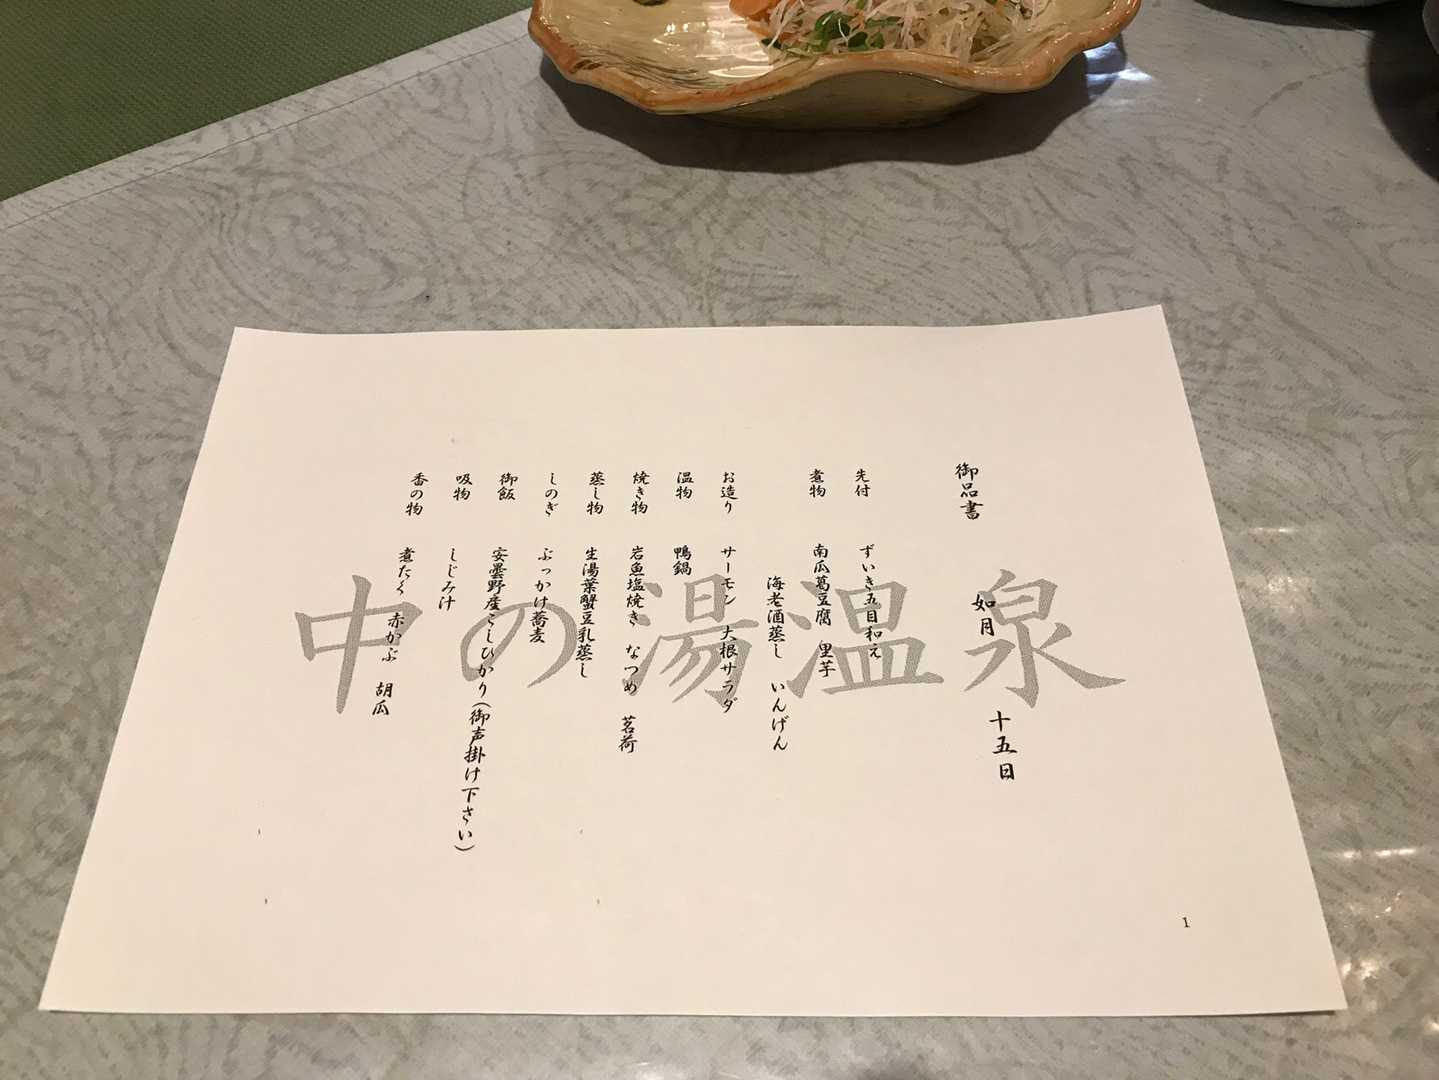 御品書 如月 十五日
先付 ずいき五目和え
煮物 南瓜葛豆腐 里芋
海老酒蒸し いんげん
お造り サーモン 大根サラダ
温物 鴨鍋
焼き物 岩魚塩焼き なつめ 茗荷
蒸し物 生湯葉蟹豆乳蒸し
しのぎ ぶっかけ蕎麦
御飯 安曇野産こしひかり(御声掛け下さい)
吸物 しじみ汁
香の物 煮たく 赤かぶ 胡瓜
中の湯温泉
1